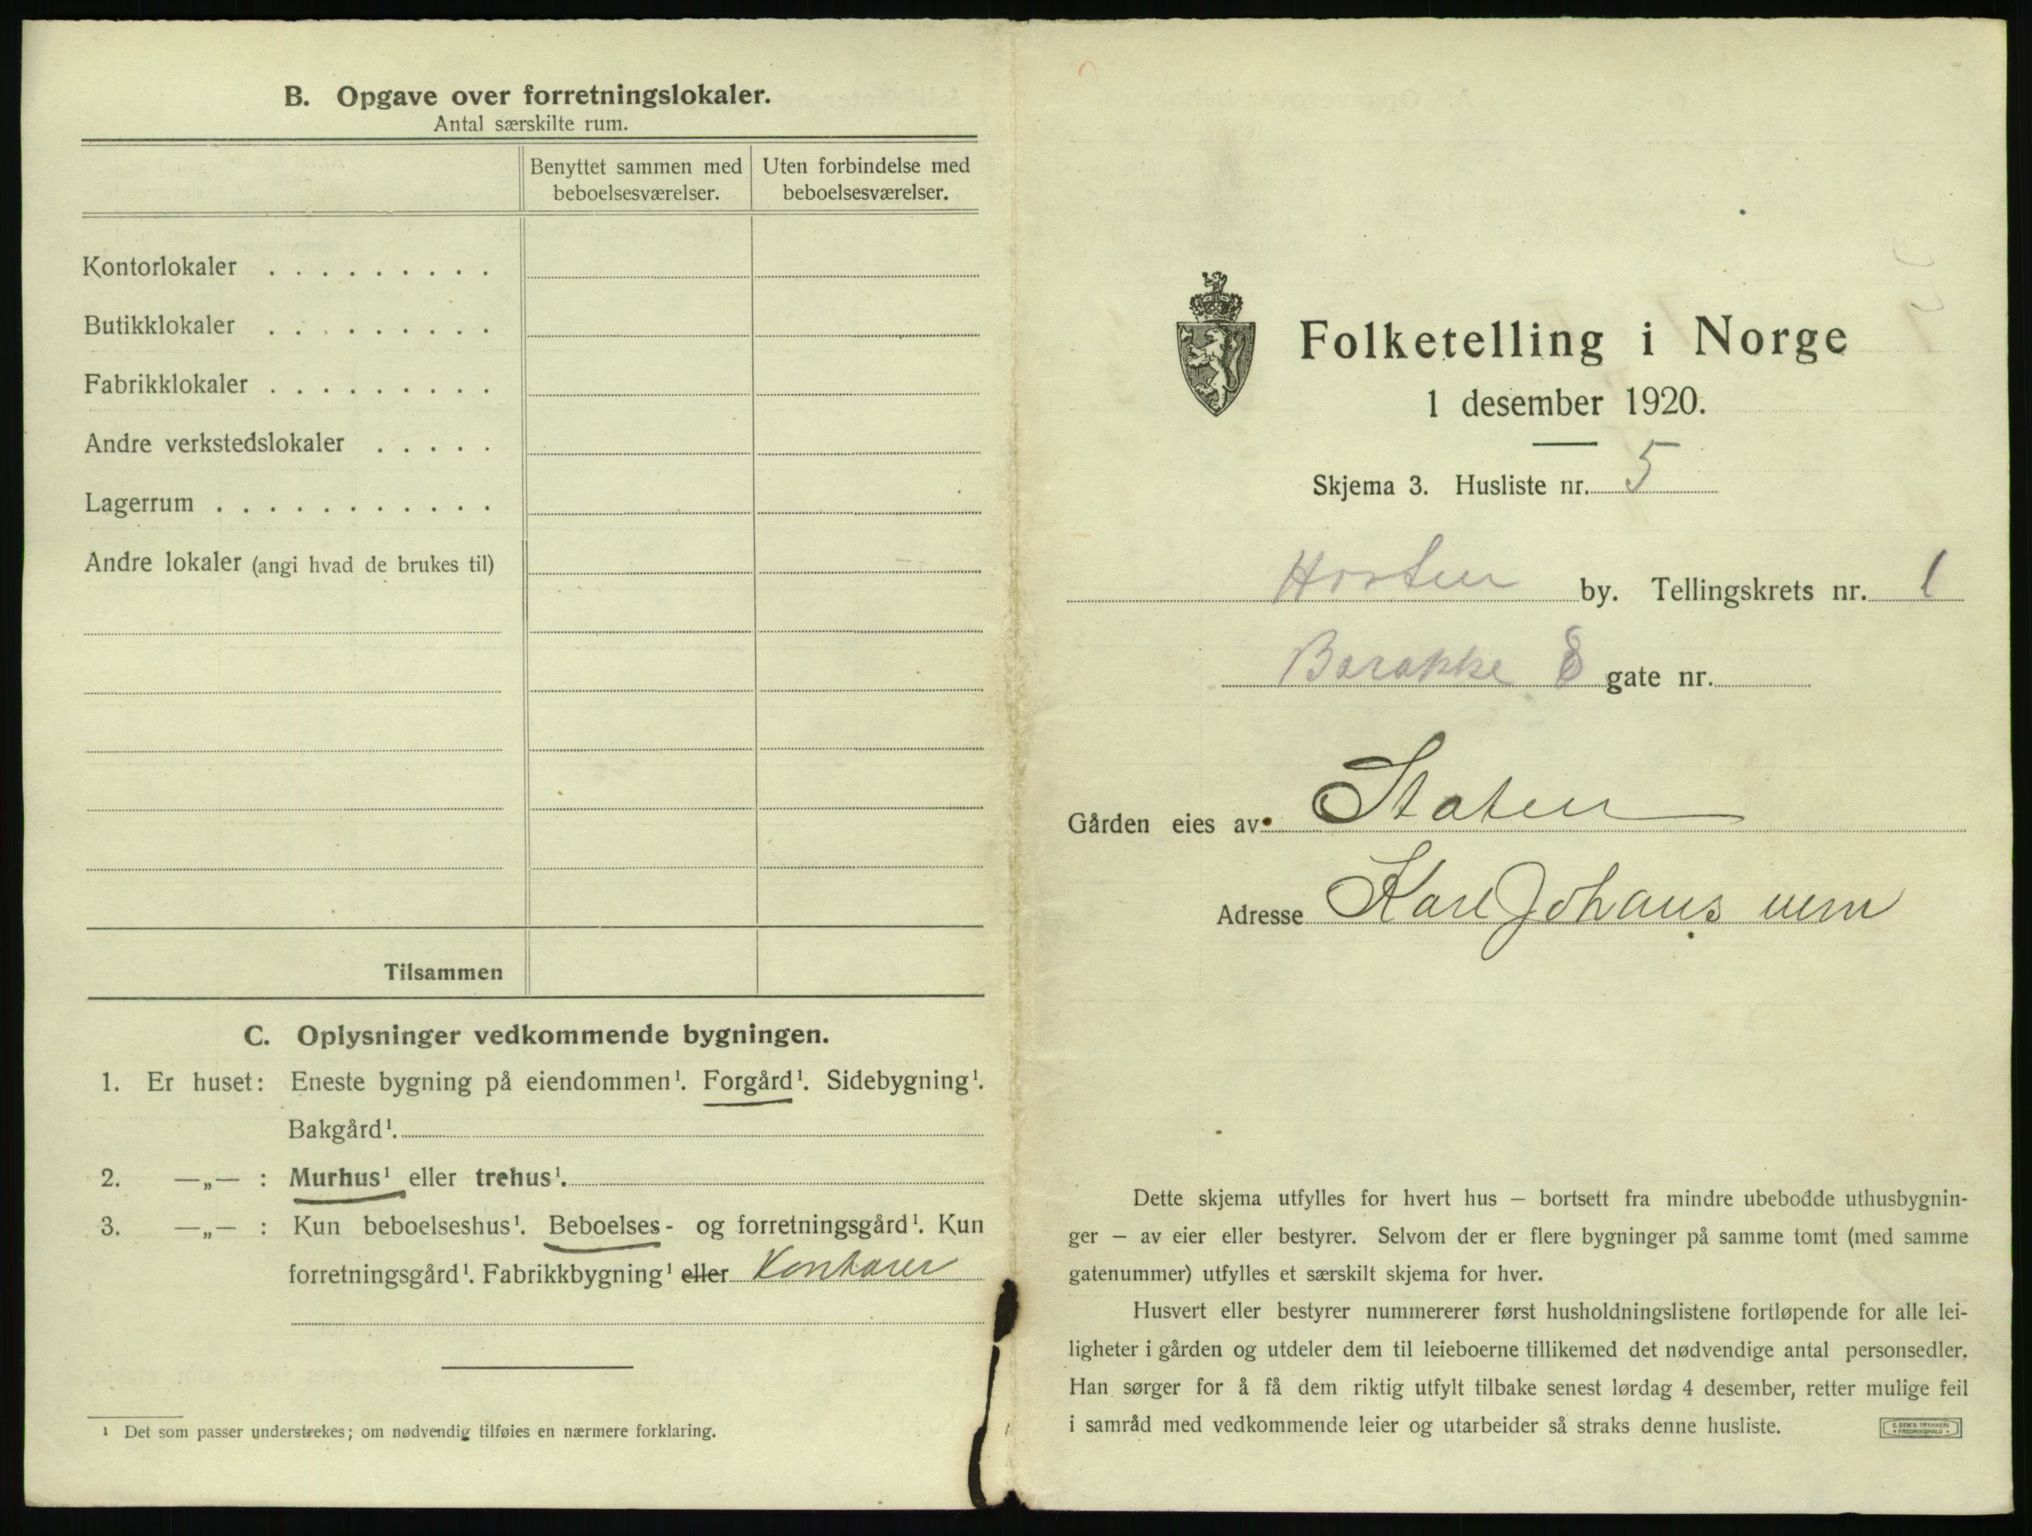 B. Opgave over forretningslokaler.
Antal særskilte rum.
Benyttet sammen med beboelsesværelser.
Uten forbindelse med beboelsesværelser.
Kontorlokaler . . . . . . . . .
Butikklokaler . . . . . . . . .
Fabrikklokaler . . . . . . . . .
Andre verkstedslokaler . . . . .
Lagerrum . . . . . . . . . . .
Andre lokaler (angi hvad de brukes til)
Tilsammen
C. Oplysninger vedkommende bygningen.
1. Er huset: Eneste bygning på eiendommen¹. Forgård¹. Sidebygning¹.
Bakgård¹.
2. —„— : Murhus¹ eller trehus¹.
3. —„— : Kun beboelseshus¹. Beboelses- og forretningsgård¹. Kun
forretningsgård¹. Fabrikkbygning¹ eller Kontorer
¹ Det som passer understrekes; om nødvendig tilføies en nærmere forklaring.
Folketelling i Norge
1 desember 1920.
Skjema 3. Husliste nr. 5
Horten by. Tellingskrets nr. 1
Barakke gate nr.
Gården eies av Staten
Adresse Karl Johans vern
Dette skjema utfylles for hvert hus – bortsett fra mindre ubebodde uthusbygnin-
ger – av eier eller bestyrer. Selvom der er flere bygninger på samme tomt (med samme
gatenummer) utfylles et særskilt skjema for hver.
Husvert eller bestyrer nummererer først husholdningslistene fortløpende for alle lei-
ligheter i gården og utdeler dem til leieboerne tillikemed det nødvendige antal personsedler.
Han sørger for å få dem riktig utfylt tilbake senest lørdag 4 desember, retter mulige feil
i samråd med vedkommende leier og utarbeider så straks denne husliste.
E. SEM'S TRYKKERI
* FREDRIKSHALD *